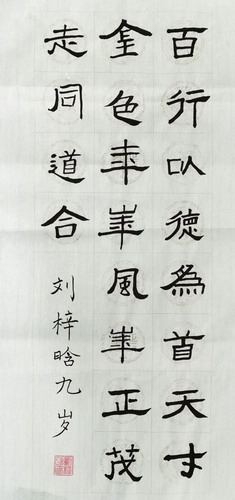 百行以德為首天才
金色年華風華正茂
志同道合
刘梓晗九岁